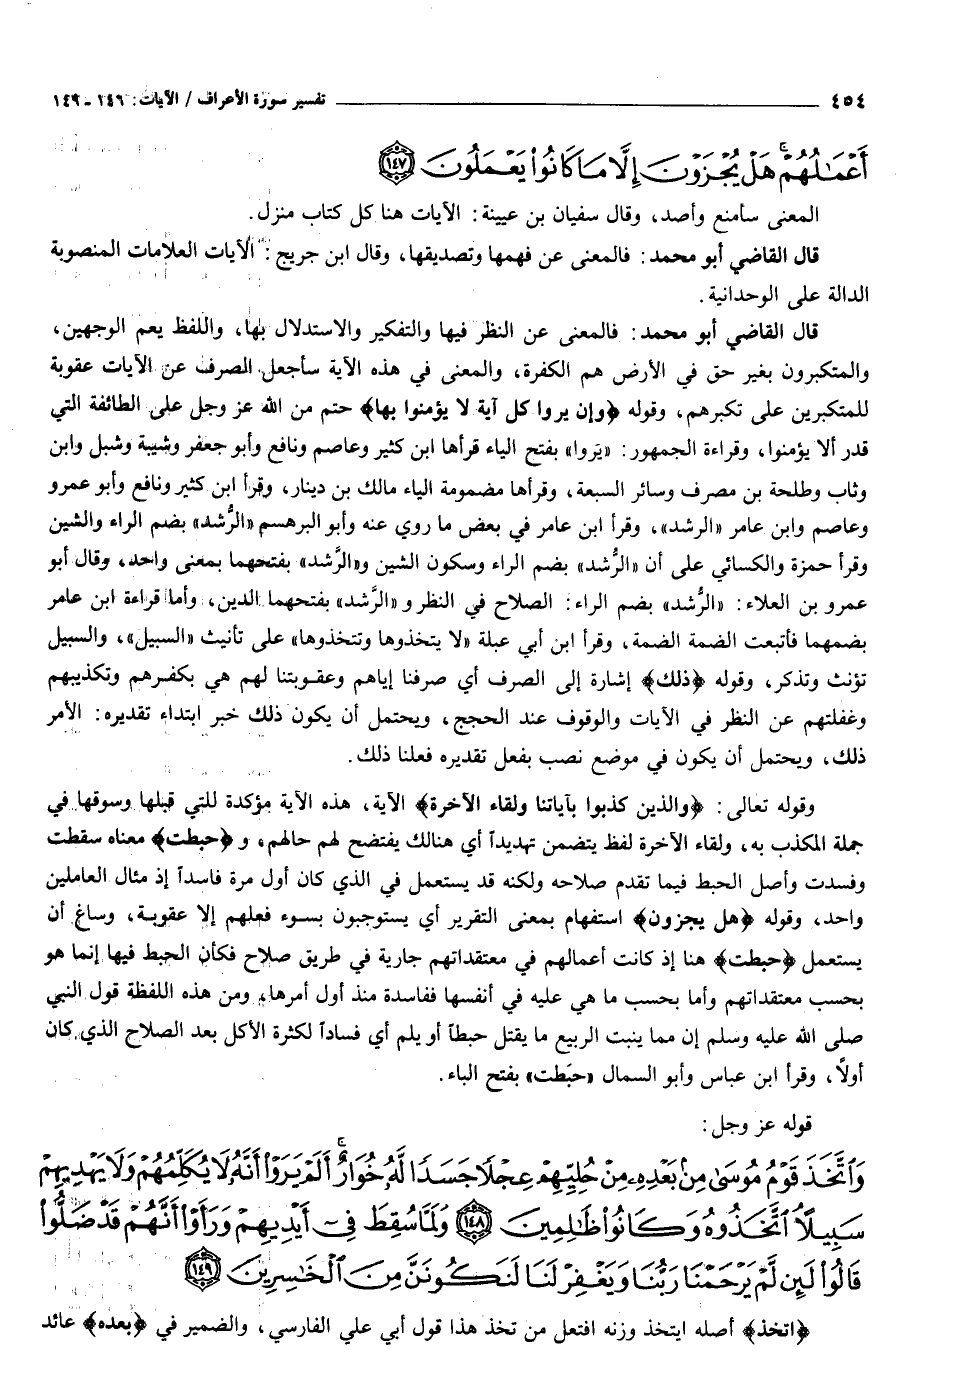 ٤٥٤ تفسير سورة الأعراف / الآيات: ١٤٦ - ١٤٩
أَعْمَٰلُهُمْ ۚ هَلْ يُجْزَوْنَ إِلَّا مَا كَانُوا۟ يَعْمَلُونَ ١٤٧
المعنى سأمنع وأصد، وقال سفيان بن عيينة: الآيات هنا كل كتاب منزل.
قال القاضي أبو محمد: فالمعنى عن فهمها وتصديقها، وقال ابن جريج: الآيات العلامات المنصوبة
الدالة على الوحدانية.
قال القاضي أبو محمد: فالمعنى عن النظر فيها والتفكير والاستدلال بها، واللفظ يعم الوجهين،
والمتكبرون بغير حق في الأرض هم الكفرة، والمعنى في هذه الآية سأجعل الصرف عن الآيات عقوبة
للمتكبرين على تكبرهم، وقوله ﴿وإن يروا كل آية لا يؤمنوا بها﴾ حتم من الله عز وجل على الطائفة التي
قدر ألا يؤمنوا، وقراءة الجمهور: «يَروا» بفتح الياء قرأها ابن كثير وعاصم ونافع وأبو جعفر وشيبة وشبل وابن
وثاب وطلحة بن مصرف وسائر السبعة، وقرأها مضمومة الياء مالك بن دينار، وقرأ ابن كثير ونافع وأبو عمرو
وعاصم وابن عامر «الرشد»، وقرأ ابن عامر في بعض ما روي عنه وأبو البرهسم «الرُّشد» بضم الراء والشين
وقرأ حمزة والكسائي على أن «الرُّشد» بضم الراء وسكون الشين و«الرَّشد» بفتحهما بمعنى واحد، وقال أبو
عمرو بن العلاء: «الرُّشد» بضم الراء: الصلاح في النظر و«الرَّشد» بفتحهما الدين، وأما قراءة ابن عامر
بضمهما فأتبعت الضمة الضمة، وقرأ ابن أبي عبلة «لا يتخذوها وتتخذوها» على تأنيث «السبيل»، والسبيل
تؤنث وتذكر، وقوله ﴿ذلك﴾ إشارة إلى الصرف أي صرفنا إياهم وعقوبتنا لهم هي بكفرهم وتكذيبهم
وغفلتهم عن النظر في الآيات والوقوف عند الحجج، ويحتمل أن يكون ذلك خبر ابتداء تقديره: الأمر
ذلك، ويحتمل أن يكون في موضع نصب بفعل تقديره فعلنا ذلك.
وقوله تعالى: ﴿والذين كذبوا بآياتنا ولقاء الآخرة﴾ الآية، هذه الآية مؤكدة للتي قبلها وسوقها في
جملة المكذب به، ولقاء الآخرة لفظ يتضمن تهديداً أي هنالك يفتضح لهم حالهم، و ﴿حبطت﴾ معناه سقطت
وفسدت وأصل الحبط فيما تقدم صلاحه ولكنه قد يستعمل في الذي كان أول مرة فاسداً إذ مثال العاملين
واحد، وقوله ﴿هل يجزون﴾ استفهام بمعنى التقرير أي يستوجبون بسوء فعلهم إلا عقوبة، وساغ أن
يستعمل ﴿حبطت﴾ هنا إذ كانت أعمالهم في معتقداتهم جارية في طريق صلاح فكأن الحبط فيها إنما هو
بحسب معتقداتهم وأما بحسب ما هي عليه في أنفسها ففاسدة منذ أول أمرها، ومن هذه اللفظة قول النبي
صلى الله عليه وسلم إن مما ينبت الربيع ما يقتل حبطاً أو يلم أي فساداً لكثرة الأكل بعد الصلاح الذي كان
أولاً، وقرأ ابن عباس وأبو السمال «حبَطت» بفتح الباء.
قوله عز وجل:
وَٱتَّخَذَ قَوْمُ مُوسَىٰ مِنۢ بَعْدِهِۦ مِنْ حُلِيِّهِمْ عِجْلًا جَسَدًا لَّهُۥ خُوَارٌ ۚ أَلَمْ يَرَوْا۟ أَنَّهُۥ لَا يُكَلِّمُهُمْ وَلَا يَهْدِيهِمْ
سَبِيلًا ۘ ٱتَّخَذُوهُ وَكَانُوا۟ ظَٰلِمِينَ ١٤٨ وَلَمَّا سُقِطَ فِىٓ أَيْدِيهِمْ وَرَأَوْا۟ أَنَّهُمْ قَدْ ضَلُّوا۟
قَالُوا۟ لَئِن لَّمْ يَرْحَمْنَا رَبُّنَا وَيَغْفِرْ لَنَا لَنَكُونَنَّ مِنَ ٱلْخَٰسِرِينَ ١٤٩
﴿اتخذ﴾ أصله ايتخذ وزنه افتعل من تخذ هذا قول أبي علي الفارسي، والضمير في ﴿بعده﴾ عائد